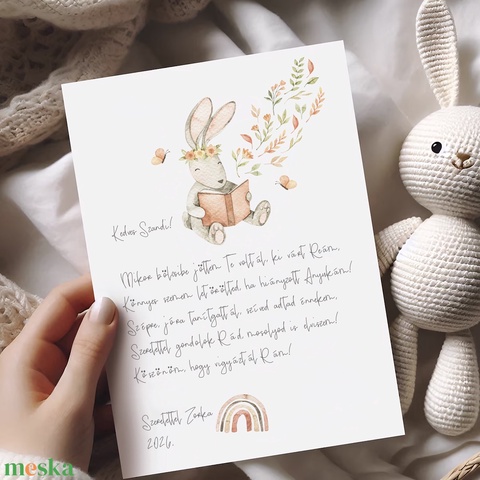 Kedves Szandi!
Mikor bölcsibe jöttem Te voltál, ki várt Reám,
Könnyes szemem letörölted ha hiányzott Anyukám!
Szépre, jóra tanítgattál, szíved adtad énnekem,
Szeretettel gondolok Rád, mosolyod is elviszem!
Köszönöm, hogy vigyáztál Rám!
Szeretettel Zorka
2026.
meska